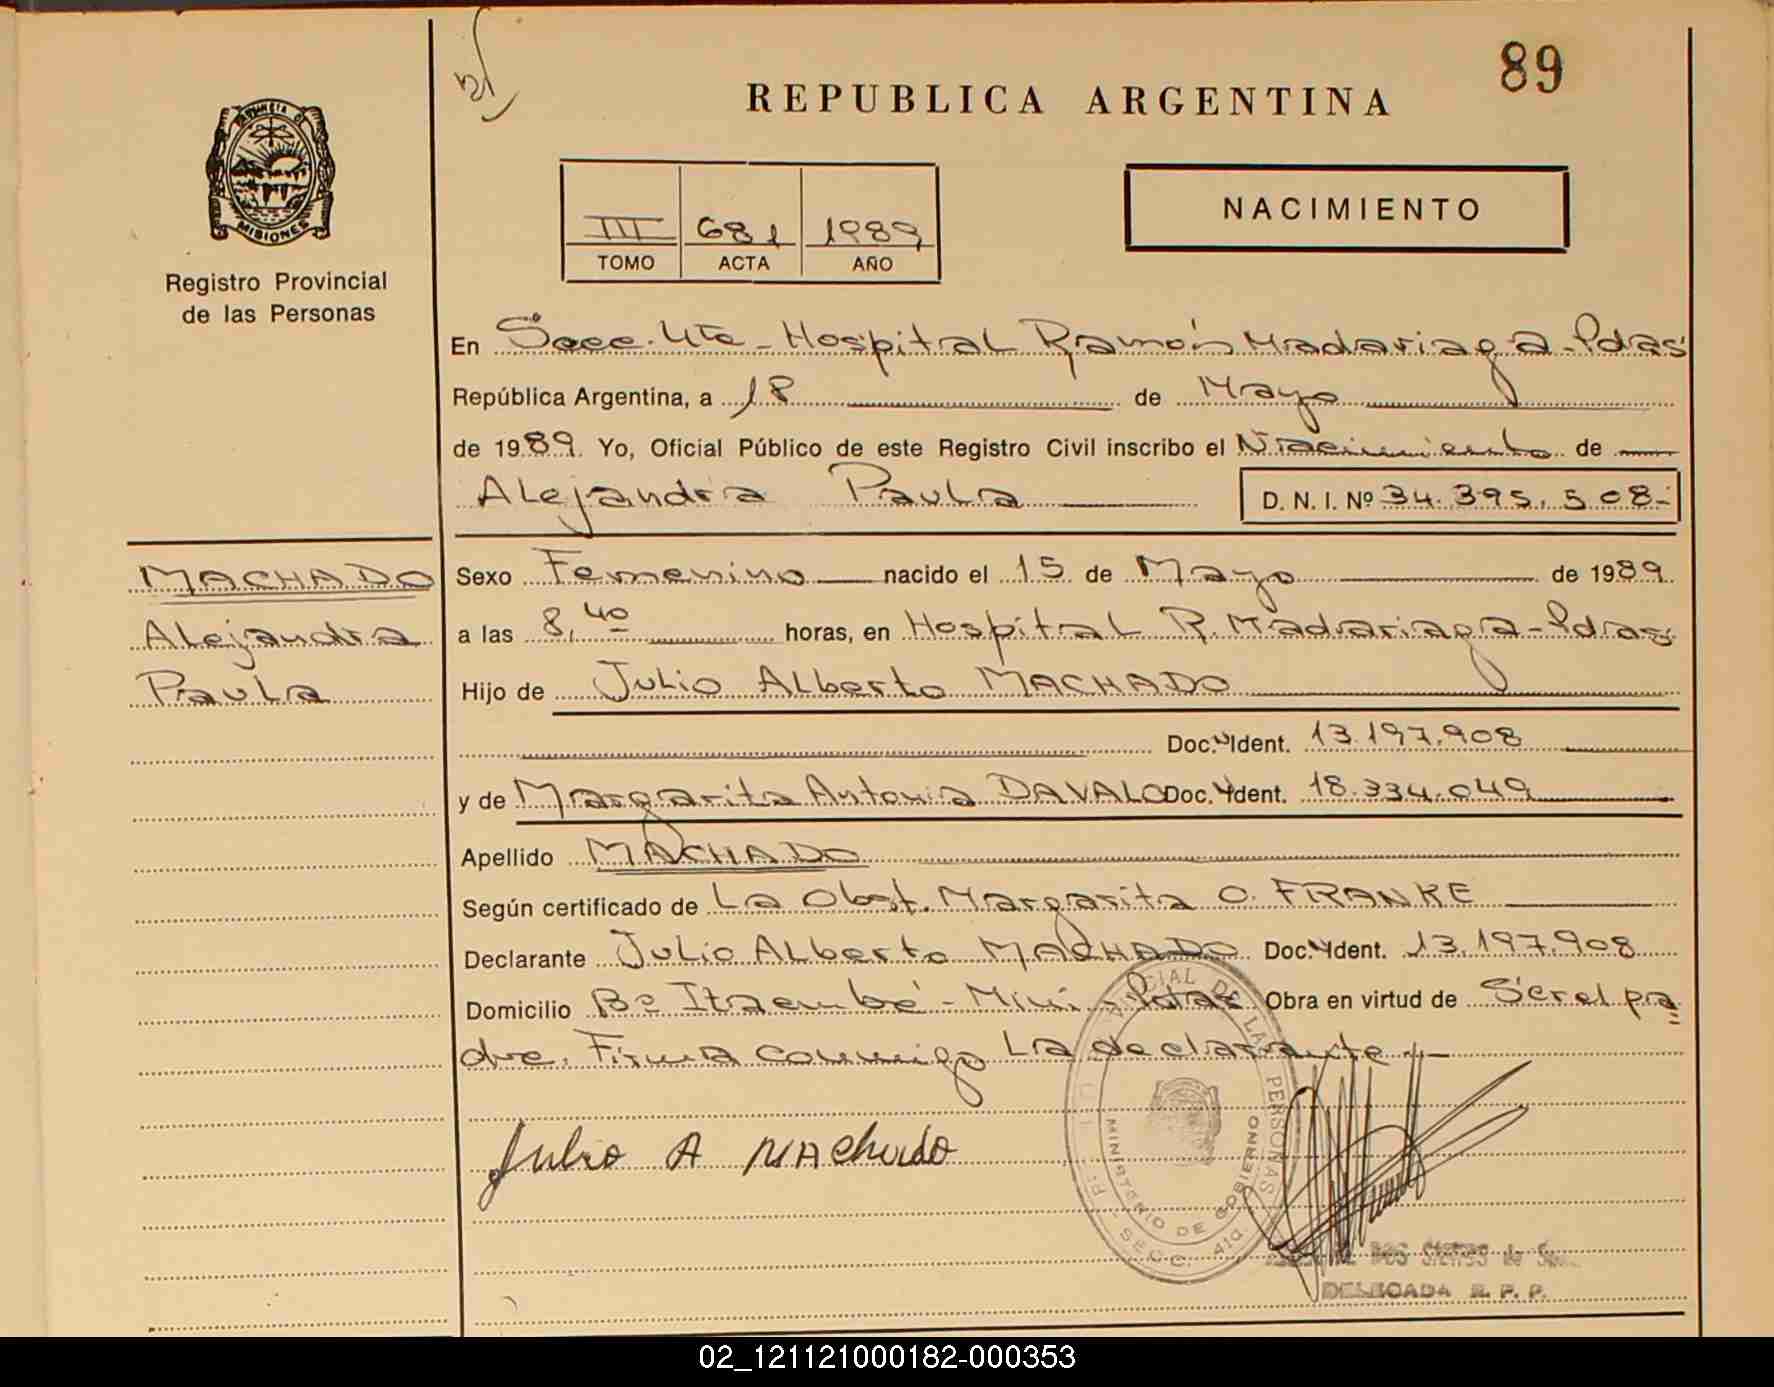 89
REPUBLICA ARGENTINA
PROVINCIA DE
MISIONES
Registro Provincial
de las Personas
III 681 1989
TOMO ACTA AÑO
NACIMIENTO
En Secc. 4ta - Hospital Ramón Madariaga - Pdas
República Argentina, a 18 de Mayo
de 1989. Yo, Oficial Público de este Registro Civil inscribo el Nacimiento de
Alejandra Paula D. N. I. Nº 34.395.508-
MACHADO
Alejandra
Paula
Sexo Femenino nacido el 15 de Mayo de 1989
a las 8,40 horas, en Hospital R. Madariaga - Pdas
Hijo de Julio Alberto MACHADO
Doc. Ident. 13.197.908
y de Margarita Antonia DAVALO Doc. Ident. 18.334.049
Apellido MACHADO
Según certificado de La Obst. Margarita O. FRANKE
Declarante Julio Alberto MACHADO Doc. Ident. 13.197.908
Domicilio Bº Itaembé - Miní - Pdas Obra en virtud de Ser el pa
dre. Firma conmigo La declarante
Julio A Machado
CIAL DE LAS PERSONAS
MINISTERIO DE GOBIERNO
SECC. 4ta
DOS SANTOS de
DELEGADA R. P. P.
02_121121000182-000353